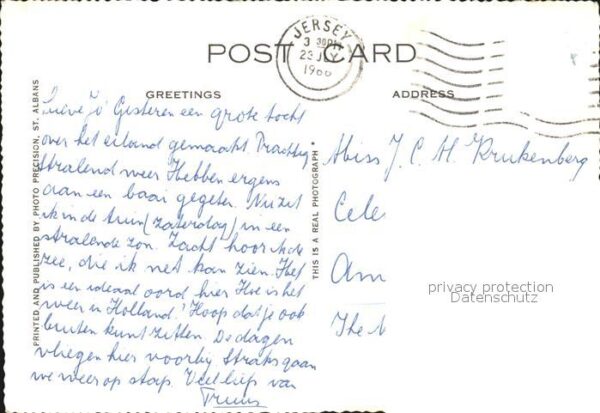 JERSEY
3 30PM
23 JLY
1966
POST CARD
GREETINGS
ADDRESS
Lieve Jo' Gisteren een grote tocht
over het eiland gemaakt Prachtig
stralend weer Hebben ergens
aan een baai gegeten. Nu zit
ik in de tuin (zaterdag) in een
stralende zon. Zacht hoor ik de
zee, die ik net kan zien. Het
is een ideaal oord hier Hoe is het
weer in Holland? Hoop dat je ook
buiten kunt zitten. De dagen
vliegen hier voorby Straks gaan
we weer op stap. Veel liefs van
Truus
PRINTED AND PUBLISHED BY PHOTO PRECISION, ST. ALBANS
THIS IS A REAL PHOTOGRAPH
Miss J. C. H. Krukenberg
Cele
Am
The N
privacy protection
Datenschutz